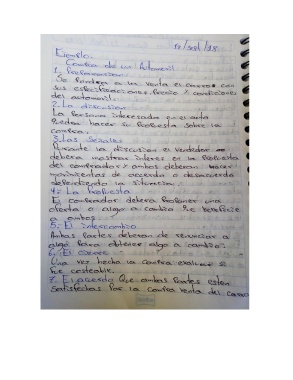 19/sept/18
Ejemplo:
Compra de un Automovil
1. Preformacion
Se pondera a un venta el carro con
sus especificaciones, precio y condiciones
del automovil.
2. La discusion
La persona interesada en el auto
puedan hacer su propuesta sobre la
compra.
3. Las señales
Durante la discusion el vendedor
debera mostrar interes en la propuesta
del comprador y ambos deberan hacer
movimientos de acuerdo o desacuerdo
defendiendo la situacion.
4. La propuesta
El comprador debera proponer una
oferta o algo a cambio que beneficie
a ambos.
5. El intercambio
Ambas partes deberan de renunciar a
algo para obtener algo a cambio.
6. El cierre
Una vez hecha la compra evaluar si
fue costeable.
7. El acuerdo Que ambas partes esten
satisfechas por la compra venta del carro